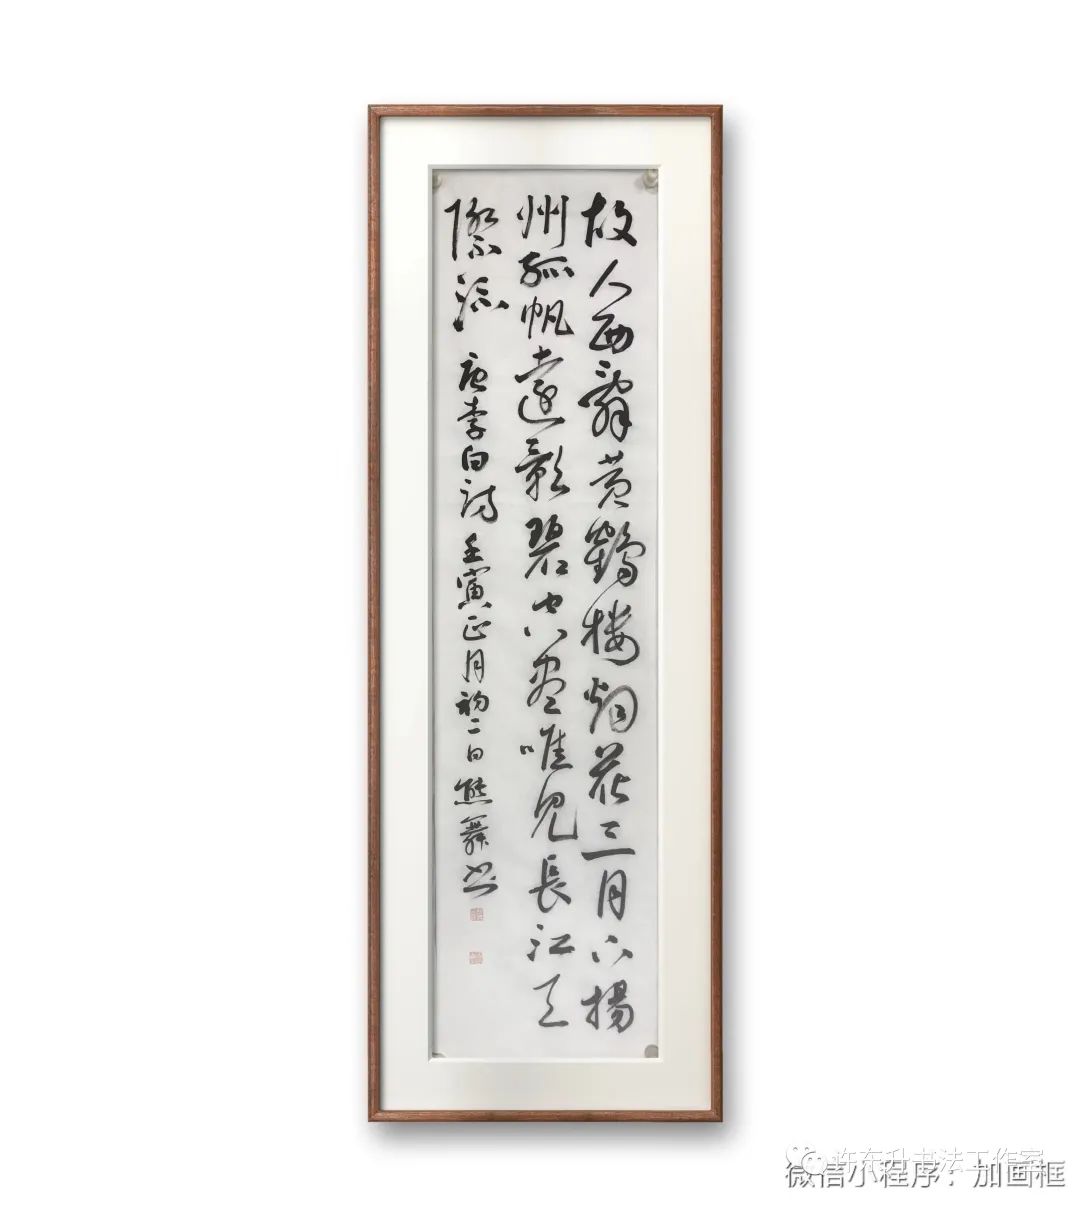 故人西辭黄鶴楼烟花三月下揚
州孤帆遠影碧空盡唯見長江天
際流 唐李白詩 壬寅正月初二日熊舞書
许东升书法工作室
微信小程序：加画框